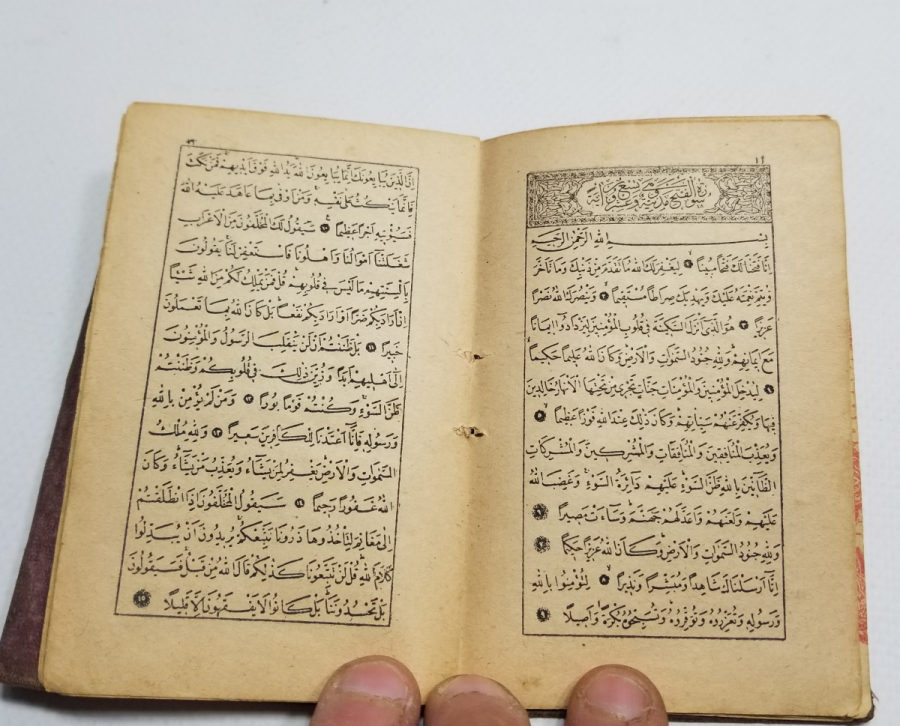 سورة الفتح مدنية وهي تسع وعشرون آية
بسم الله الرحمن الرحيم
اِنَّا فَتَحْنَا لَكَ فَتْحًا مُبِينًا ١ لِيَغْفِرَ لَكَ اللهُ مَا تَقَدَّمَ مِنْ ذَنْبِكَ وَمَا تَاَخَّرَ
وَيُتِمَّ نِعْمَتَهُ عَلَيْكَ وَيَهْدِيَكَ صِرَاطًا مُسْتَقِيمًا ٢ وَيَنْصُرَكَ اللهُ نَصْرًا
عَزِيزًا ٣ هُوَ الَّذِى اَنْزَلَ السَّكِينَةَ فِى قُلُوبِ الْمُؤْمِنِينَ لِيَزْدَادُوا اِيمَانًا
مَعَ اِيمَانِهِمْ وَلِلّٰهِ جُنُودُ السَّمٰوَاتِ وَالْاَرْضِ وَكَانَ اللهُ عَلِيمًا حَكِيمًا
٤ لِيُدْخِلَ الْمُؤْمِنِينَ وَالْمُؤْمِنَاتِ جَنَّاتٍ تَجْرِى مِنْ تَحْتِهَا الْاَنْهَارُ خَالِدِينَ
فِيهَا وَيُكَفِّرَ عَنْهُمْ سَيِّاٰتِهِمْ وَكَانَ ذٰلِكَ عِنْدَ اللهِ فَوْزًا عَظِيمًا ٥
وَيُعَذِّبَ الْمُنَافِقِينَ وَالْمُنَافِقَاتِ وَالْمُشْرِكِينَ وَالْمُشْرِكَاتِ
الظَّانِّينَ بِاللهِ ظَنَّ السَّوْءِ عَلَيْهِمْ دَائِرَةُ السَّوْءِ وَغَضِبَ اللهُ
عَلَيْهِمْ وَلَعَنَهُمْ وَاَعَدَّ لَهُمْ جَهَنَّمَ وَسَاءَتْ مَصِيرًا ٦
وَلِلّٰهِ جُنُودُ السَّمٰوَاتِ وَالْاَرْضِ وَكَانَ اللهُ عَزِيزًا حَكِيمًا ٧
اِنَّا اَرْسَلْنَاكَ شَاهِدًا وَمُبَشِّرًا وَنَذِيرًا ٨ لِتُؤْمِنُوا بِاللهِ
وَرَسُولِهِ وَتُعَزِّرُوهُ وَتُوَقِّرُوهُ وَتُسَبِّحُوهُ بُكْرَةً وَاَصِيلًا ٩
اِنَّ الَّذِينَ يُبَايِعُونَكَ اِنَّمَا يُبَايِعُونَ اللهَ يَدُ اللهِ فَوْقَ اَيْدِيهِمْ فَمَنْ نَكَثَ
فَاِنَّمَا يَنْكُثُ عَلٰى نَفْسِهِ وَمَنْ اَوْفٰى بِمَا عَاهَدَ عَلَيْهُ اللهَ
فَسَيُؤْتِيهِ اَجْرًا عَظِيمًا ١٠ سَيَقُولُ لَكَ الْمُخَلَّفُونَ مِنَ الْاَعْرَابِ
شَغَلَتْنَا اَمْوَالُنَا وَاَهْلُونَا فَاسْتَغْفِرْ لَنَا يَقُولُونَ
بِاَلْسِنَتِهِمْ مَا لَيْسَ فِى قُلُوبِهِمْ قُلْ فَمَنْ يَمْلِكُ لَكُمْ مِنَ اللهِ شَيْئًا
اِنْ اَرَادَ بِكُمْ ضَرًّا اَوْ اَرَادَ بِكُمْ نَفْعًا بَلْ كَانَ اللهُ بِمَا تَعْمَلُونَ
خَبِيرًا ١١ بَلْ ظَنَنْتُمْ اَنْ لَنْ يَنْقَلِبَ الرَّسُولُ وَالْمُؤْمِنُونَ
اِلٰى اَهْلِيهِمْ اَبَدًا وَزُيِّنَ ذٰلِكَ فِى قُلُوبِكُمْ وَظَنَنْتُمْ
ظَنَّ السَّوْءِ وَكُنْتُمْ قَوْمًا بُورًا ١٢ وَمَنْ لَمْ يُؤْمِنْ بِاللهِ
وَرَسُولِهِ فَاِنَّا اَعْتَدْنَا لِلْكَافِرِينَ سَعِيرًا ١٣ وَلِلّٰهِ مُلْكُ
السَّمٰوَاتِ وَالْاَرْضِ يَغْفِرُ لِمَنْ يَشَاءُ وَيُعَذِّبُ مَنْ يَشَاءُ وَكَانَ
اللهُ غَفُورًا رَحِيمًا ١٤ سَيَقُولُ الْمُخَلَّفُونَ اِذَا انْطَلَقْتُمْ
اِلٰى مَغَانِمَ لِتَأْخُذُوهَا ذَرُونَا نَتَّبِعْكُمْ يُرِيدُونَ اَنْ يُبَدِّلُوا
كَلَامَ اللهِ قُلْ لَنْ تَتَّبِعُونَا كَذٰلِكُمْ قَالَ اللهُ مِنْ قَبْلُ فَسَيَقُولُونَ
بَلْ تَحْسُدُونَنَا بَلْ كَانُوا لَا يَفْقَهُونَ اِلَّا قَلِيلًا ١٥